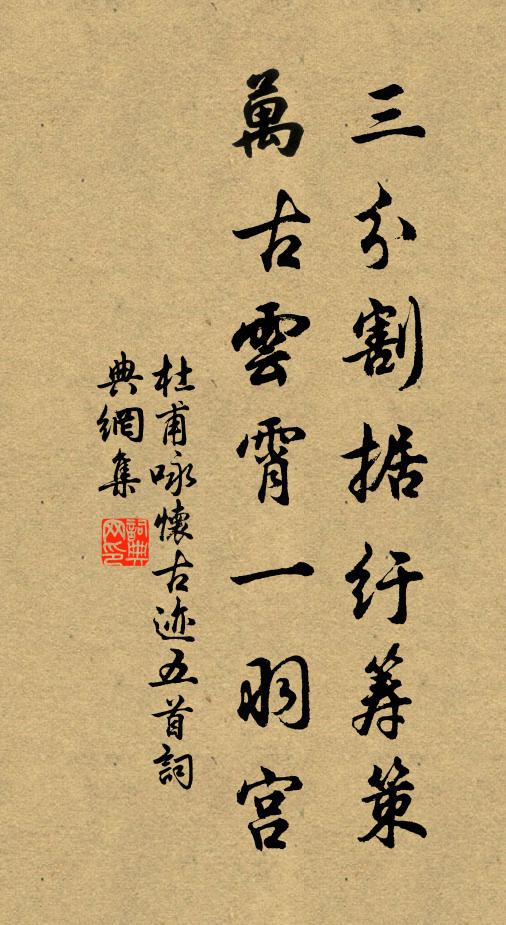 三分割据紆筹策
萬古雲霄一羽宫
杜甫咏懷古迹五首詞
典網集
詞典网印